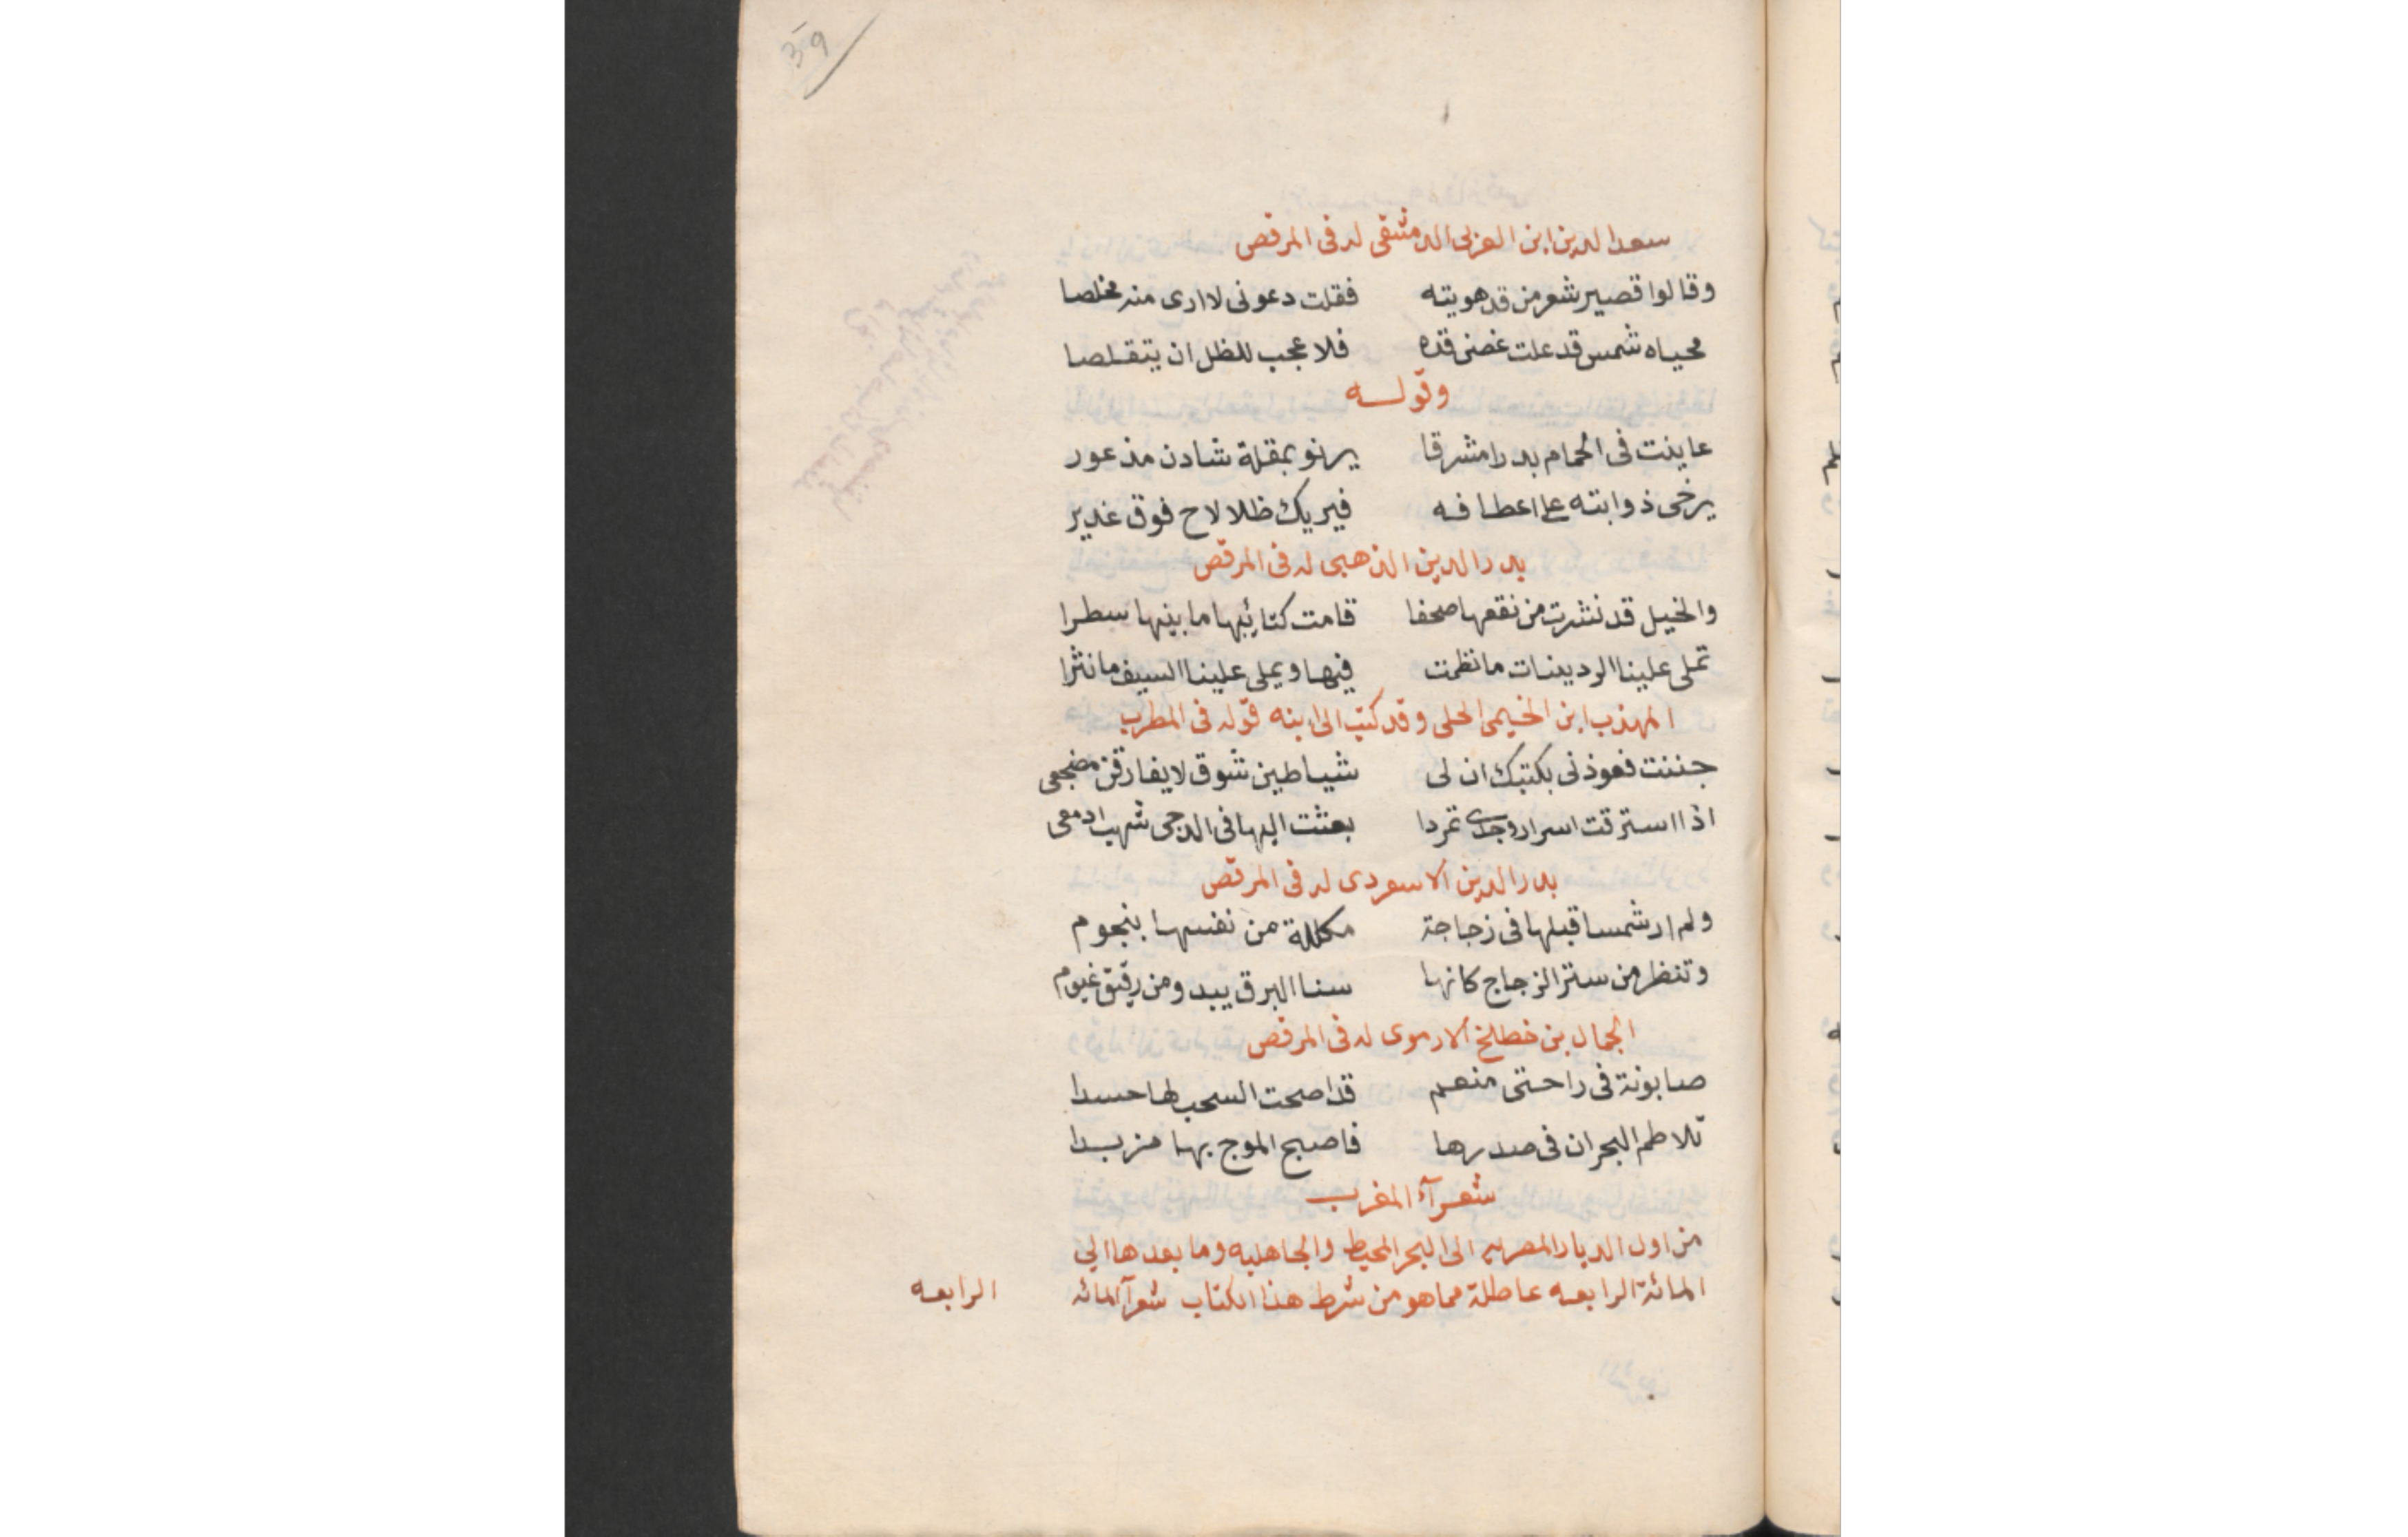 39
سعد الدين ابن العزبى الدمشقى له فى المرقص
وقالوا قصير شعر من قد هويته فقلت دعونى لا ارى منه مخلصا
محياه شمس قد علت غصن قده فلا عجب للظل ان يتقلصا
وقوله
عاينت فى الحمام بدرا مشرقا يرنو بمقلة شادن مذعور
يرخى ذوابته على اعطافه فيريك ظلا لاح فوق غدير
بدر الدين الذهبى له فى المرقص
والخيل قد نشرت من نقعها صحفا قامت كتائبها ما بينها سطرا
تملى علينا الردينات ما نظمت فيها ويملى علينا السيف ما نثرا
المهذب ابن الخيمى الحلى وقد كتب الى ابنه قوله فى المطرب
جننت فعوذنى بكتبك ان لى شياطين شوق لا يفارقن مضجعى
اذا استرقت اسرار وجدى تمردا بعثت اليها فى الدجى شهب ادمعى
بدر الدين الاسعردى له فى المرقص
ولم ار شمسا قبلها فى زجاجة مكللة من نفسها بنجوم
وتنظر من ستر الزجاج كانها سنا البرق يبدو من رقيق غيوم
الجمال بن خطلخ الارموى له فى المرقص
صابونة فى راحتى منعم قد اصحت السحب لها حسدا
تلاطم البحران فى صدرها فاصبح الموج بها مزبدا
شعرآء المغرب
من اول الديار المصريه الى البحر المحيط والجاهليه وما بعدها الي
المائة الرابعه عاطلة مما هو من شرط هذا الكتاب شعرآ المائه
الرابعه